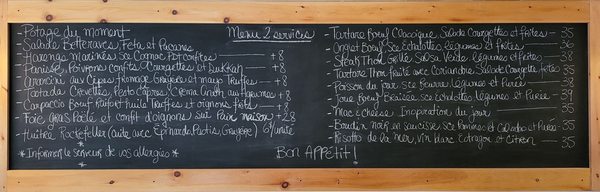 Menu 2 services
- Potage du moment
- Salade Betteraves, Feta et Pacanes
- Harengs Marinés Sce Cornac Pdt confites +8
- Panisse, Poivrons confits Courgettes et Dukkah +8
- Arancini aux Cèpes fromage Gruyère et mayo Truffes +8
- Patada Crevettes, Pesto Câpres, Crème Aneth aux agrumes +8
- Carpaccio Boeuf rupert huile Truffes et oignons frits +8
- Foie gras Poêlé et confit d'oignons sur Pain maison +28
- Huître Rockefeller (cuite avec Épinards, Pastis, Gruyère) 6/unité
* Informer le serveur de vos allergies *
- Tartare Boeuf Classique Salade Courgettes et frites - 35
- Onglet Boeuf Sce échalottes légumes et frites - 36
- Steak Thon grillé Salsa Verde légumes et frites - 38
- Tartare Thon fraîte avec Coriandre Salade Courgettes frites 35
- Poisson du jour Sce Beurre légumes et Purée - 35
- Joue Boeuf Braisée Sce échalottes légumes et Purée - 39
- Mac & cheese Inspiration du jour - 35
- Boudin noir en saucisse Sce Pommes et Calvados et Purée - 35
- Risotto de la mer, vin blanc Estragon et Citron - 35
Bon Appétit!